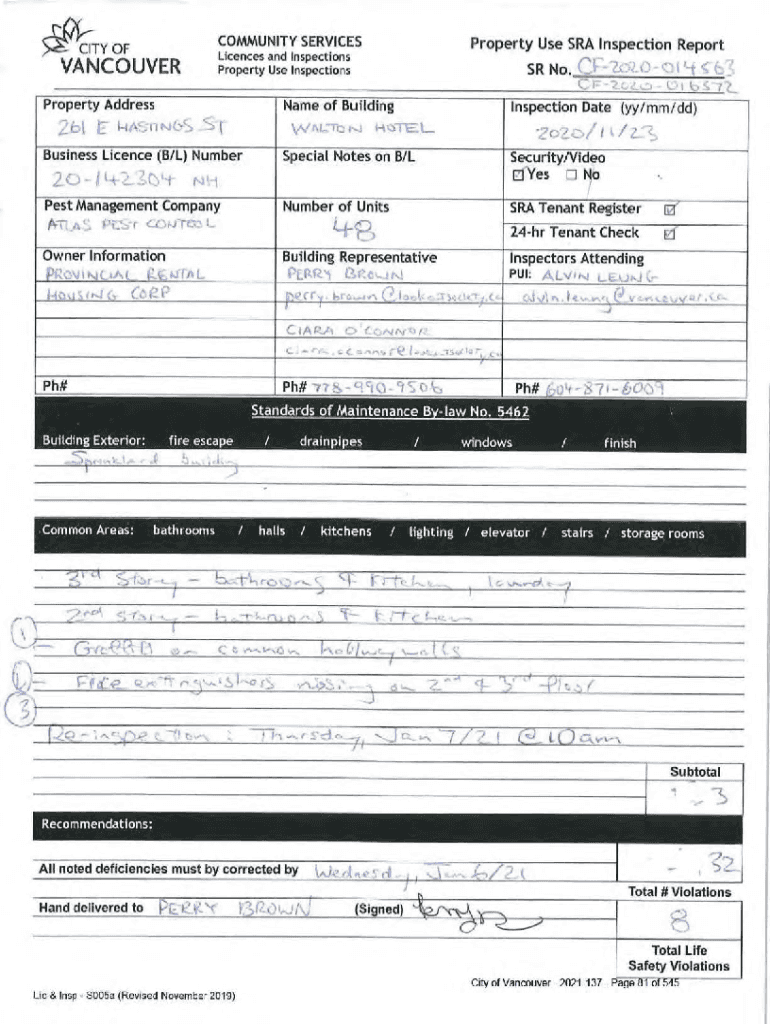 CITY OF
VANCOUVER
COMMUNITY SERVICES
Licences and Inspections
Property Use Inspections
Property Use SRA Inspection Report
SR No. CF-2020-014563
CF-2020-016572
Property Address
261 E HASTINGS ST
Name of Building
WALTON HOTEL
Inspection Date (yy/mm/dd)
2020/11/23
Business Licence (B/L) Number
20-142304 NH
Special Notes on B/L
Security/Video
☑ Yes ☐ No
Pest Management Company
ATLAS PEST CONTROL
Number of Units
48
SRA Tenant Register ☑
24-hr Tenant Check ☑
Owner Information
PROVINCIAL RENTAL
HOUSING CORP
Building Representative
PERRY BROWN
perry.brown@lookoutsociety.ca
CIARA O'CONNOR
ciara.oconnor@lookoutsociety.ca
Inspectors Attending
PUI: ALVIN LEUNG
alvin.leung@vancouver.ca
Ph#
Ph# 778-990-9506
Ph# 604-871-6009
Standards of Maintenance By-law No. 5462
Building Exterior: fire escape / drainpipes / windows / finish
Sprinklered building
Common Areas: bathrooms / halls / kitchens / lighting / elevator / stairs / storage rooms
3rd Storey - bathrooms & kitchen, laundry
2nd storey - bathrooms & kitchen
1 - Graffiti on common hallway walls
- Fire extinguishers missing on 2nd & 3rd floor
3
Re-inspection: Thursday, Jan 7/21 @ 10am
Subtotal
3
Recommendations:
All noted deficiencies must by corrected by Wednesday, Jan 6/21
32
Total # Violations
Hand delivered to PERRY BROWN (Signed)
8
Total Life
Safety Violations
City of Vancouver 2021 137 Page 81 of 545
Lic & Insp - S005a (Revised November 2019)